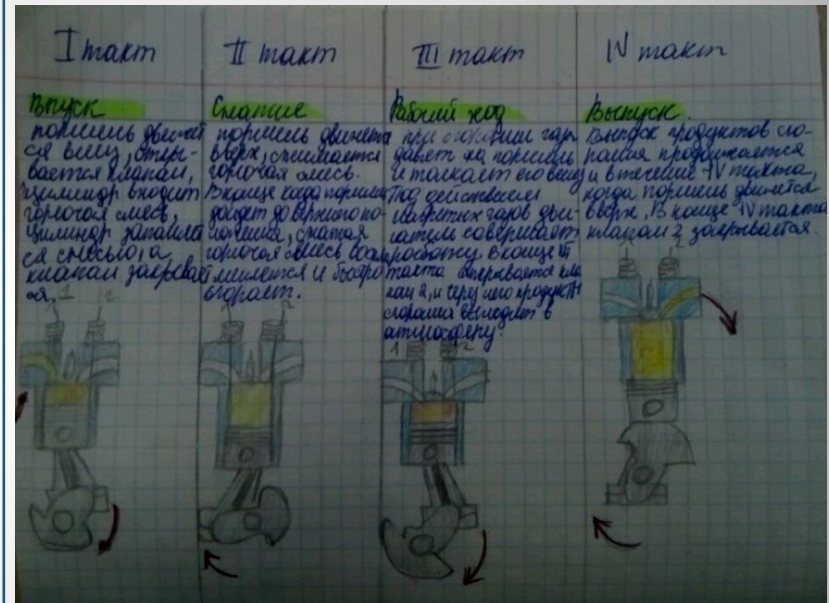 I такт
II такт
III такт
IV такт
Впуск
поршень движет
ся вниз, откры-
вается клапан,
цилиндр входит
горючая смесь,
цилиндр заполняет
ся смесью, а
клапан закрывает
ся.
1 2
Сжатие
поршень движется
вверх, сжимается
горючая смесь.
В конце когда поршень
дойдет до верхнего по-
ложения, сжатая
горючая смесь воспла
меняется и быстро
сгорает.
1 2
Рабочий ход
при сгорании газ
давит на поршень
и толкает его вниз
Под действием
нагретых газов дви-
гатель совершает
работу. В конце III
такта открывается кла
пан 2, и через него продукты
сгорания выходят в
атмосферу.
1 2
Выпуск.
Выпуск продуктов сго-
рания продолжается
и в течение IV такта,
когда поршень движется
вверх. В конце IV такта
клапан 2 закрывается.
1 2